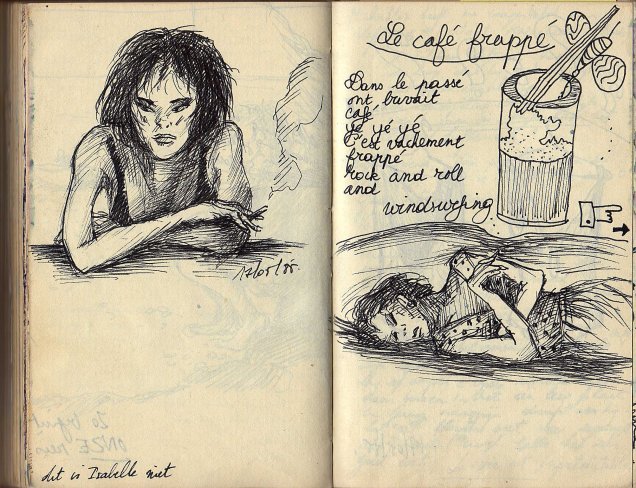 dit is Isabelle niet
Le café frappé
Dans le passé
ont buvait
café
yé yé yé
C'est vachement
frappé
rock and roll
and
windsurfing